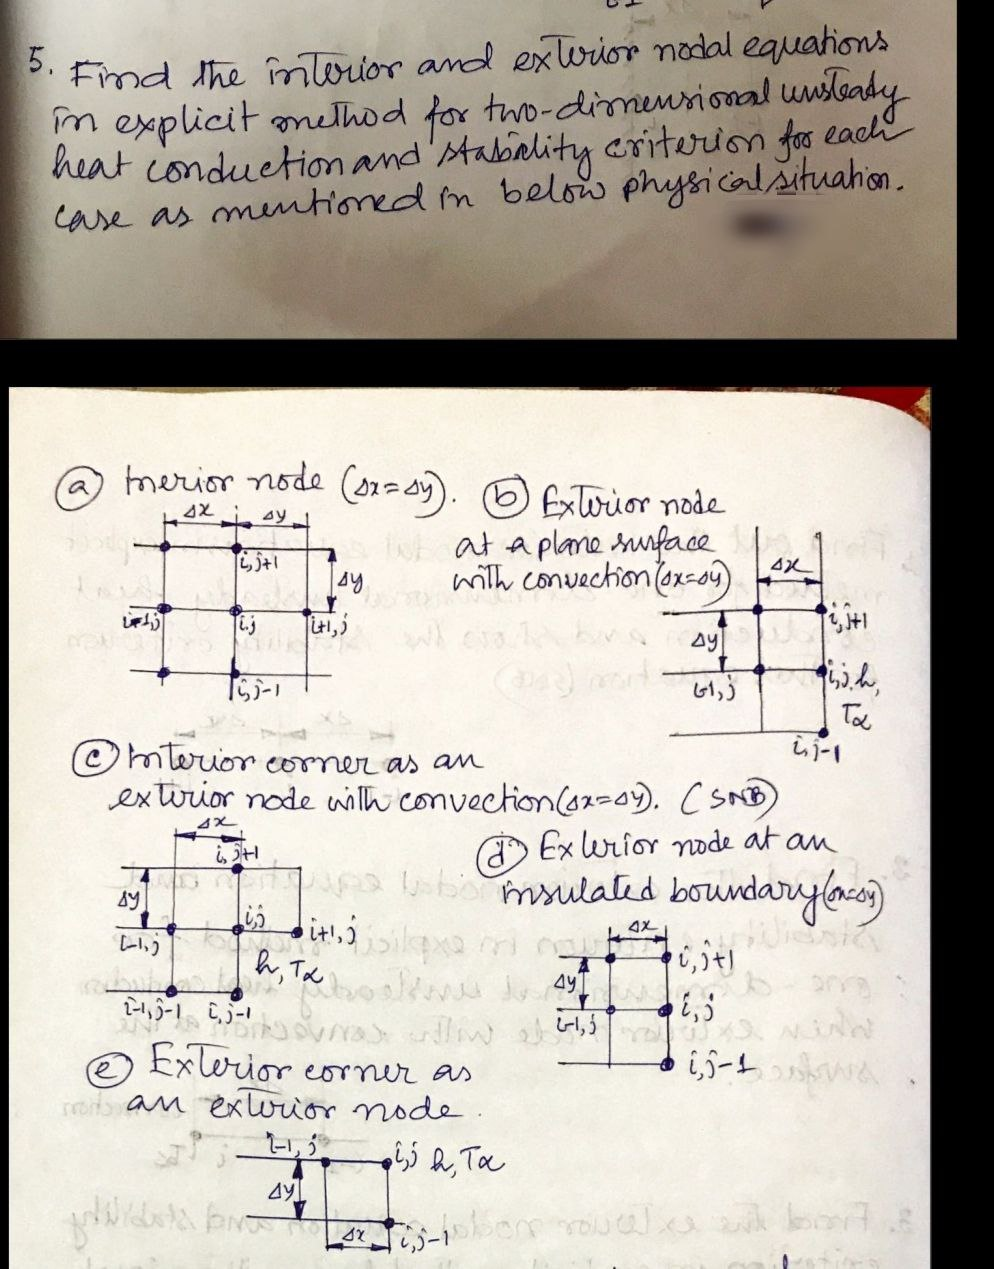 5. Find the interior and exterior nodal equations
in explicit method for two-dimensional unsteady
heat conduction and stability criterion for each
case as mentioned in below physical situation.
ⓐ Inerior node (Δx=Δy).
Δx Δy
i,j+1
Δy
i-1,j i,j i+1,j
i,j-1
ⓑ Exterior node
at a plane surface
with convection (Δx=Δy)
Δx
i,j+1
Δy
i-1,j i,j h,
T∝
i,j-1
ⓒ Interior corner as an
exterior node with convection (Δx=Δy). (SNB)
Δx
i,j+1
Δy
i-1,j i,j i+1,j
h, T∝
i-1,j-1 i,j-1
ⓓ Exterior node at an
insulated boundary (Δx=Δy)
Δx
i,j+1
Δy
i-1,j i,j
i,j-1
ⓔ Exterior corner as
an exterior node.
i-1,j i,j h, T∝
Δy
Δx i,j-1